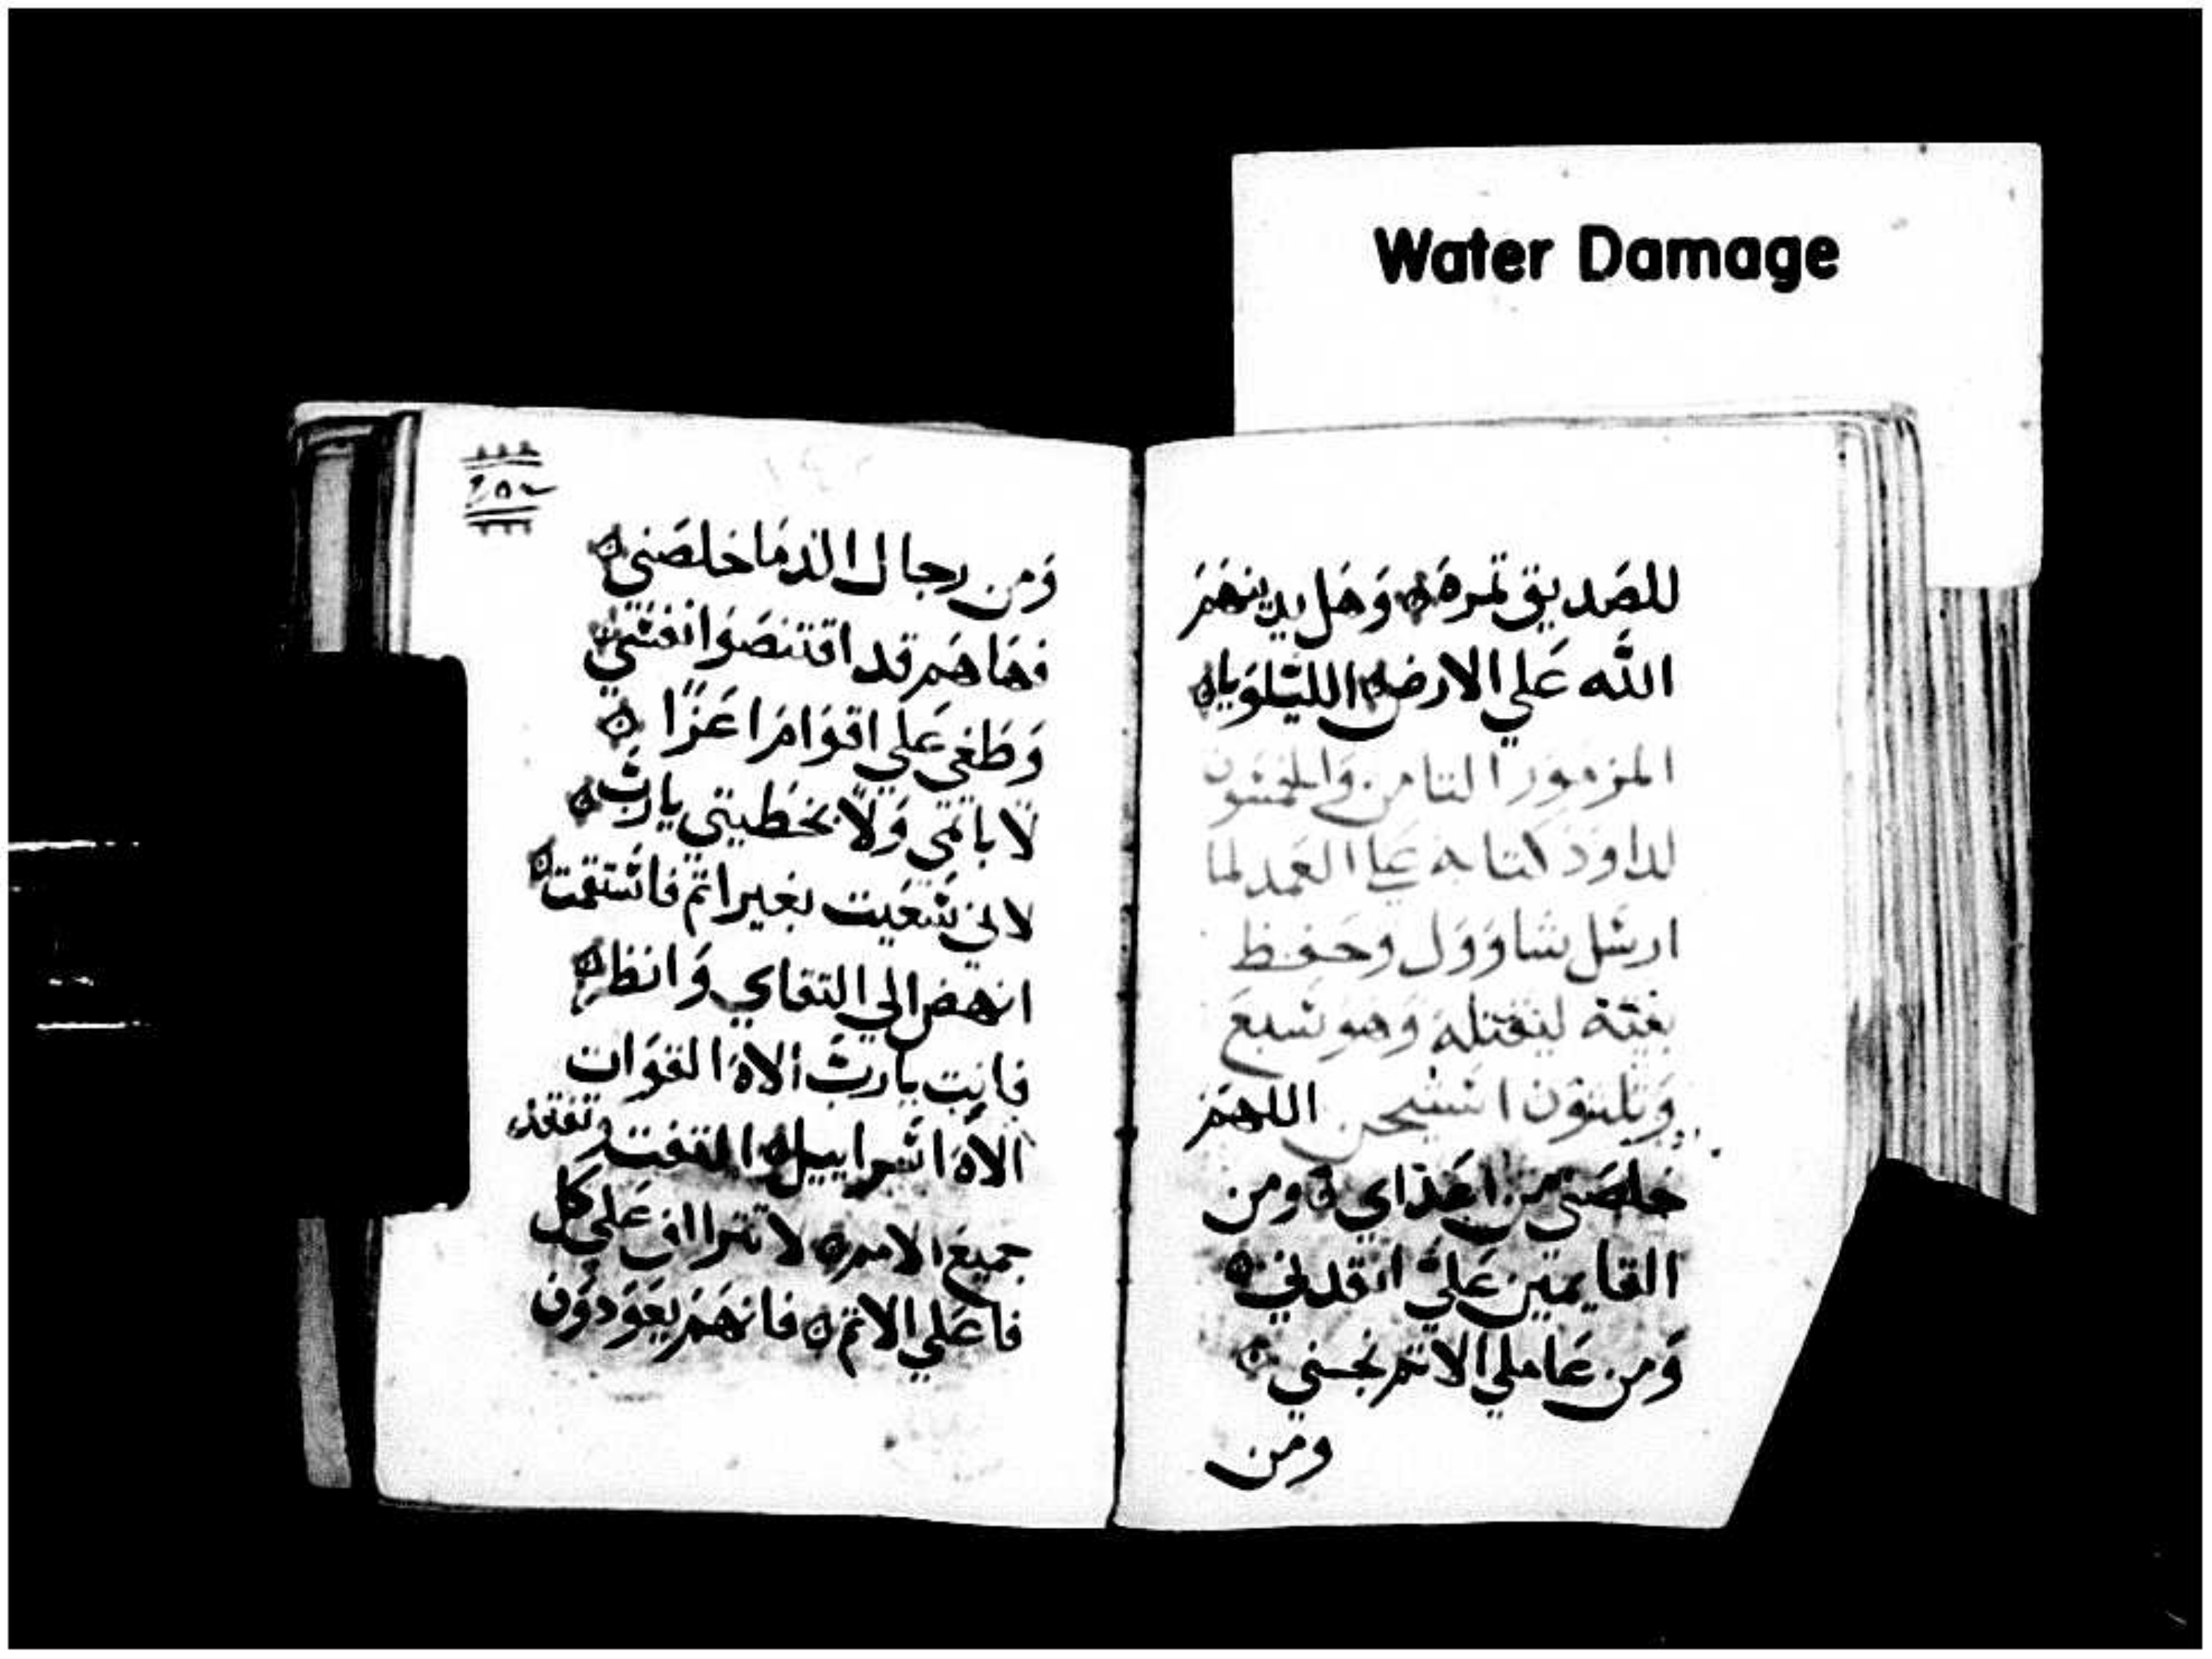 Water Damage
للصديق تمره وهل يدينهم
الله على الارض الليلويا
المزمور الثامن والخمسون
لداود كتابه على العمد لما
ارسل شاوول وحفظ
بيته ليقتله وهو تسبع
وثلثون استيخن اللهم
خلصني من اعداي ومن
القايمين علي انقدني
ومن عاملي الاتم نجيني
ومن
ومن رجال الدما خلصني
فها هم قد اقتنصوا نفسي
وطغى علي اقوام اعزا
لا باتمي ولا بخطيتي يارب
لاني سعيت بغير اتم فاستقمت
انهض الي التقاي وانظر
فانت يارب الاه القوات
الاه اسراييل التفت وتفتقد
جميع الامم لا تتراف على كل
فاعلي الاتم فانهم يعودون